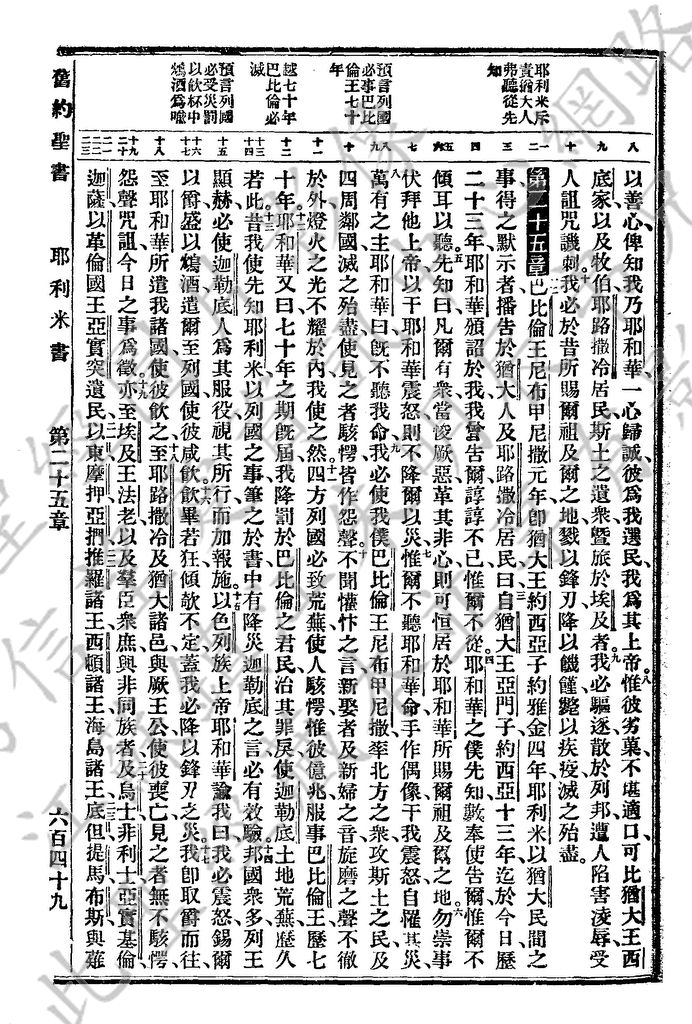 耶利米斥
責猶大人
弗聽從先
知
預言列國
必事巴比
倫王七十
年
越七十年
巴比倫必
滅
預言列國
必受災罰
以飲杯中
鴆酒爲喻
八 以善心俾知我乃耶和華一心歸誠彼爲我選民我爲其上帝惟彼劣菓不堪適口可比猶大王西
九 底家以及牧伯耶路撒冷居民斯土之遺衆曁旅於埃及者我必驅逐散於列邦遭人陷害淩辱受
十 人詛咒譏刺我必於昔所賜爾祖及爾之地戮以鋒刃降以饑饉斃以疾疫滅之殆盡
第二十五章 巴比倫王尼布甲尼撒元年卽猶大王約西亞子約雅金四年耶利米以猶大民間之
事得之默示者播告於猶大人及耶路撒冷居民曰自猶大王亞門子約西亞十三年迄於今日歷
二十三年耶和華頒詔於我我曾告爾諄諄不已惟爾不從耶和華之僕先知數奉使告爾惟爾不
傾耳以聽先知曰凡爾有衆當悛厥惡革其非心則可恒居於耶和華所賜爾祖及爾之地勿崇事
伏拜他上帝以干耶和華震怒則不降爾以災惟爾不聽耶和華命手作偶像干我震怒自罹其災
萬有之主耶和華曰旣不聽我命我必使我僕巴比倫王尼布甲尼撒率北方之衆攻斯土之民及
四周鄰國滅之殆盡使見之者駭愕皆作怨聲不聞懽忭之言新娶者及新婦之音旋磨之聲不徹
於外燈火之光不耀於內我使之然四方列國必致荒蕪使人駭愕惟彼億兆服事巴比倫王歷七
十年耶和華又曰七十年之期旣屆我降罰於巴比倫之君民治其罪戾使迦勒底土地荒蕪歷久
若此昔我使先知耶利米以列國之事筆之於書中有降災迦勒底之言必有效驗邦國衆多列王
顯赫必使迦勒底人爲其服役視其所行而加報施以色列族上帝耶和華諭我曰我必震怒錫爾
以爵盛以鴆酒遣爾至列國使彼咸飲飲畢若狂傾欹不定蓋我必降以鋒刃之災我卽取爵而往
至耶和華所遣我諸國使彼飲之至耶路撒冷及猶大諸邑與厥王公使彼喪亡見之者無不駭愕
怨聲咒詛今日之事爲徵亦至埃及王法老以及羣臣衆庶與非同族者及烏士非利士亞實基倫
迦薩以革倫國王亞實突遺民以東摩押亞捫推羅諸王西頓諸王海島諸王底但提馬布斯與薙
舊約聖書 耶利米書 第二十五章 六百四十九